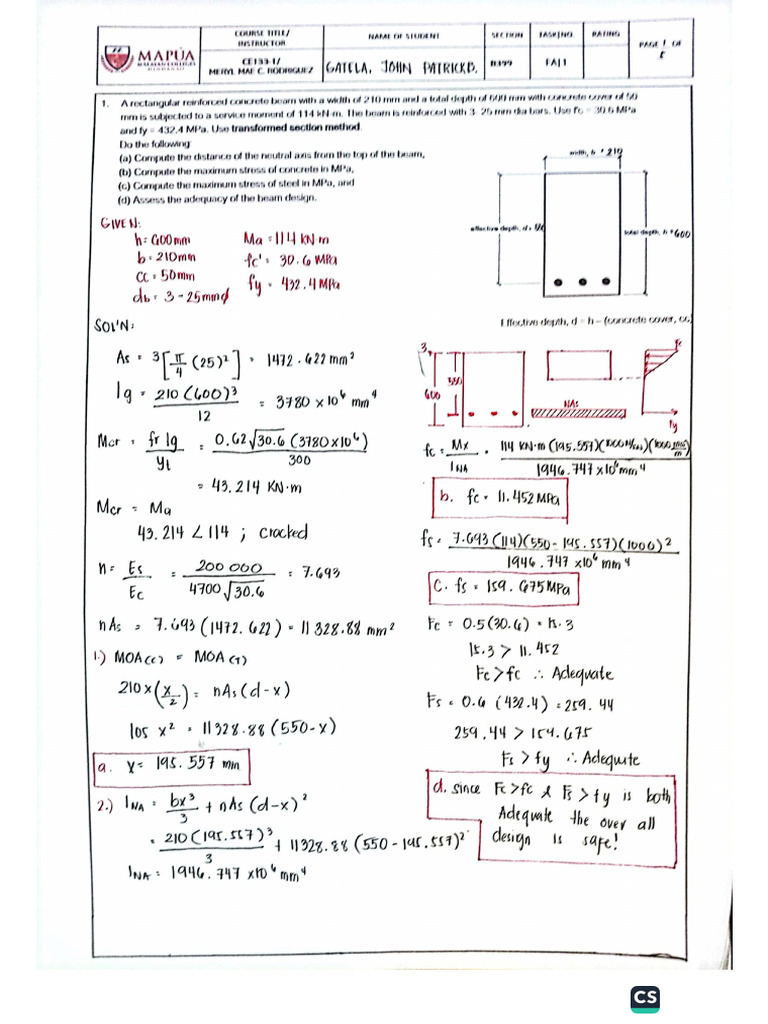 MAPÚA
MALAYAN COLLEGES
COURSE TITLE/ INSTRUCTOR
NAME OF STUDENT
SECTION
TASK|NO.
RATING
PAGE 1 OF
CE133-1/
MERYL MAE C. RODRIGUEZ
GATELA, JOHN PATRICK D.
1. A rectangular reinforced concrete beam with a width of 210 mm and a total depth of 600 mm with concrete cover of 50
mm is subjected to a service moment of 114 kN-m. The beam is reinforced with 3-25 mm dia bars. Use f'c = 30.6 MPa
and fy = 432.4 MPa. Use transformed section method.
Do the following:
(a) Compute the distance of the neutral axis from the top of the beam,
(b) Compute the maximum stress of concrete in MPa,
(c) Compute the maximum stress of steel in MPa, and
(d) Assess the adequacy of the beam design.
width, b = 210
effective depth, d =
total depth, h = 600
Effective depth, d = h – (concrete cover, cc)
GIVEN:
h = 600mm
b = 210mm
cc = 50mm
db = 3 - 25mmϕ
Ma = 114 KN·m
fc' = 30.6 MPa
fy = 432.4 MPa
SOL'N:
As = 3[π/4 (25)²] = 1472.622 mm²
Ig = 210 (600)³/12 = 3780 x 10⁶ mm⁴
Mcr = fr Ig/yt = 0.62√30.6 (3780x10⁶)/300
= 43.214 KN·m
Mcr = Ma
43.214 < 114 ; cracked
n = Es/Ec = 200 000/4700√30.6 = 7.693
nAs = 7.693 (1472.622) = 11 328.88 mm²
1.) MOA(C) = MOA(T)
210x(x/2) = nAs (d-x)
105 x² = 11328.88 (550-x)
a. x = 195.557 mm
2.) INA = bx³/3 + nAs (d-x)²
= 210(195.557)³/3 + 11328.88 (550-195.557)²
INA = 1946.747 x10⁶ mm⁴
600
550
NAs
fc
fy
fc = Mx/INA = 114 KN·m (195.557)(1000 N/KN)(1000 mm/m)/1946.747x10⁶mm⁴
b. fc = 11.452 MPa
fs = 7.693 (114)(550 - 195.557)(1000)²/1946.747 x10⁶ mm⁴
C. fs = 159.675MPa
Fc = 0.5(30.6) = 15.3
15.3 > 11.452
Fc > fc ∴ Adequate
Fs = 0.6 (432.4) = 259.44
259.44 > 159.675
Fs > fy ∴ Adequate
d. since Fc>fc & Fs > fy is both
Adequate the over all
design is safe!
CS